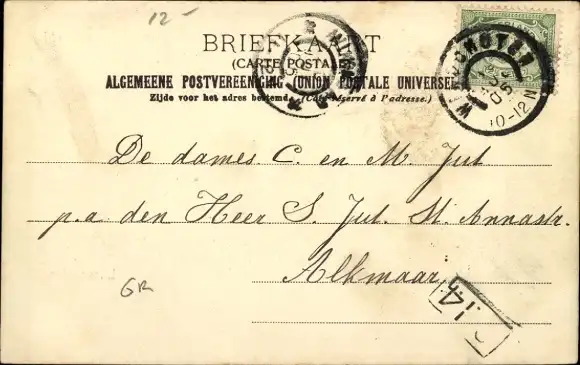 12-
BRIEFKAART
(CARTE POSTALE)
ALGEMEENE POSTVEREENIGING (UNION POSTALE UNIVERSELLE)
Zijde voor het adres bestemd. (Côté réservé à l'adresse.)
10-12N
De dames. C. en M. Jut
p.a den Heer S. Jut. St. Annastr.
Alkmaar
GR
14h